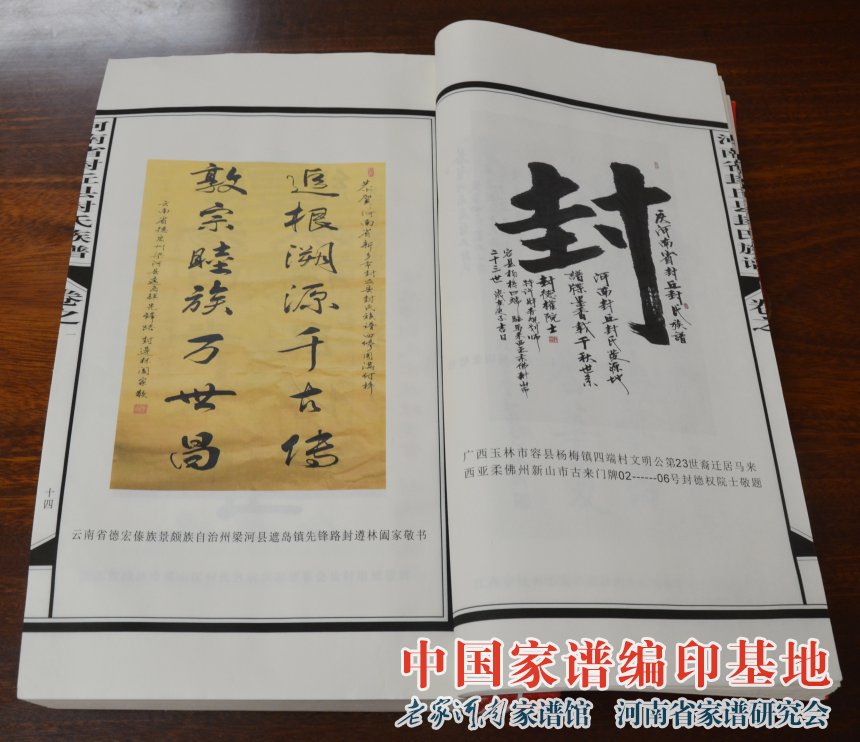 河南省封丘县封氏族谱
卷之一
十四
恭贺河南省新乡市封丘县封氏族谱四修圆满付梓
追根溯源千古传
敦宗睦族万世昌
云南省德宏州梁河县遮岛镇先锋路封遵林阖家敬
云南省德宏傣族景颇族自治州梁河县遮岛镇先锋路封遵林阖家敬书
封
庆河南省封丘封氏族谱
河南封丘封氏发源地
谱牒墨香载千秋世系
封德权院士
二十三世
广西玉林市容县杨梅镇四端村文明公第23世裔迁居马来
西亚柔佛州新山市古来门牌02------06号封德权院士敬题
卷之
中国家谱编印基地
老家河南家谱馆 河南省家谱研究会